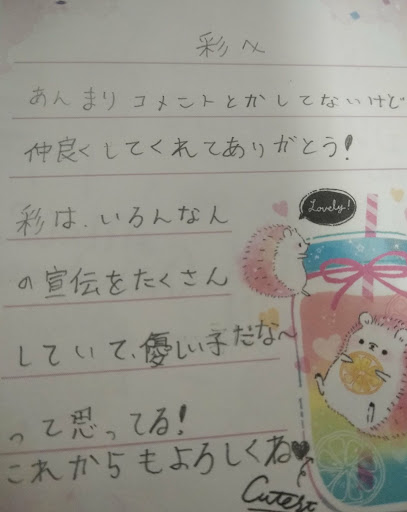 彩へ
あんまりコメントとかしてないけど
仲良くしてくれてありがとう!
Lovely!
彩は、いろんなん
の宣伝をたくさん
していて、優しい子だな〜
って思ってる!
これからもよろしくね♥
Cutest